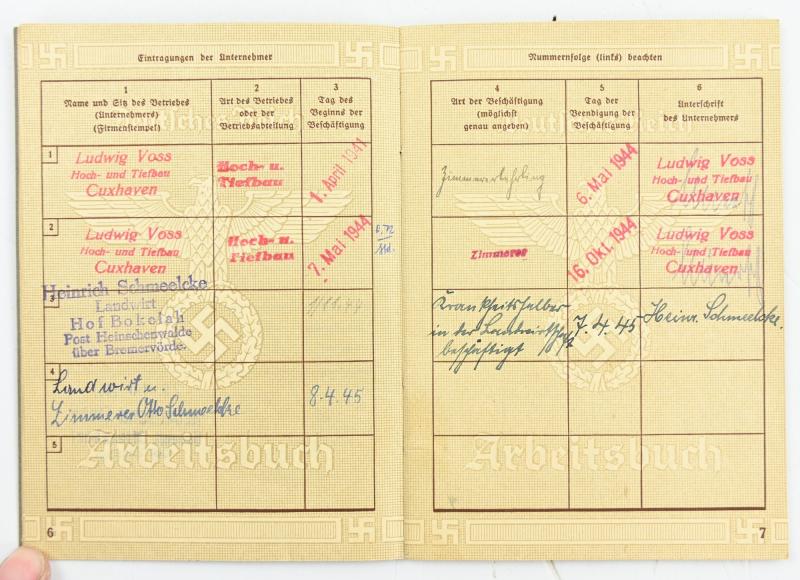 Eintragungen der Unternehmer
1
Name und Sitz des Betriebes
(Unternehmers)
(Firmenstempel)
2
Art des Betriebes
oder der
Betriebsabteilung
3
Tag des
Beginns der
Beschäftigung
1
Ludwig Voss
Hoch- und Tiefbau
Cuxhaven
Hoch- u.
Tiefbau
1. April 1941
2
Ludwig Voss
Hoch- und Tiefbau
Cuxhaven
Hoch- u.
Tiefbau
7. Mai 1944
0,72
Std.
3
Heinrich Schmeelcke
Landwirt
Hof Bokelah
Post Heinschenwalde
über Bremervörde.
1/11.44
4
Landwirt u.
Zimmerer Otto Schmeelcke
8.4.45
5
Arbeitsbuch
6
Nummernfolge (links) beachten
Deutsches Reich
4
Art der Beschäftigung
(möglichst
genau angeben)
5
Tag der
Beendigung der
Beschäftigung
6
Unterschrift
des Unternehmers
Zimmererlehrling
6. Mai 1944
Ludwig Voss
Hoch- und Tiefbau
Cuxhaven
Zimmerer
16. Okt. 1944
Ludwig Voss
Hoch- und Tiefbau
Cuxhaven
Krankheitshalber
in der Landwirtschaft
beschäftigt
7.4.45
Heinr. Schmeelcke.
Arbeitsbuch
7